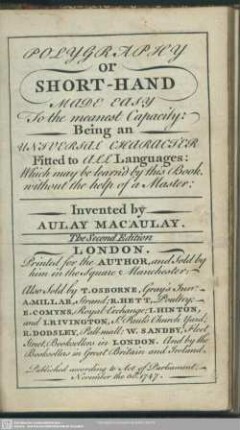 POLYGRAPHY
or
SHORT-HAND
MADE EASY
To the meanest Capacity:
Being an
UNIVERSAL CHARACTER
Fitted to ALL Languages:
Which may be learn'd by this Book,
without the help of a Master:
Invented by
AULAY MACAULAY.
The Second Edition
LONDON.
Printed for the AUTHOR, and Sold by
him in the Square Manchester:
Also Sold by T. OSBORNE, Gray's Inn:
A. MILLAR, Strand; R. HETT, Poultry;
E. COMYNS, Royal Exchange; I. HINTON,
and I. RIVINGTON, St. Paul's Church Yard;
R. DODSLEY, Pall-mall; W. SANDBY, Fleet
Street, Booksellers in LONDON. And by the
Booksellers in Great Britain and Ireland.
Published according to Act of Parliament,
November the 1747.